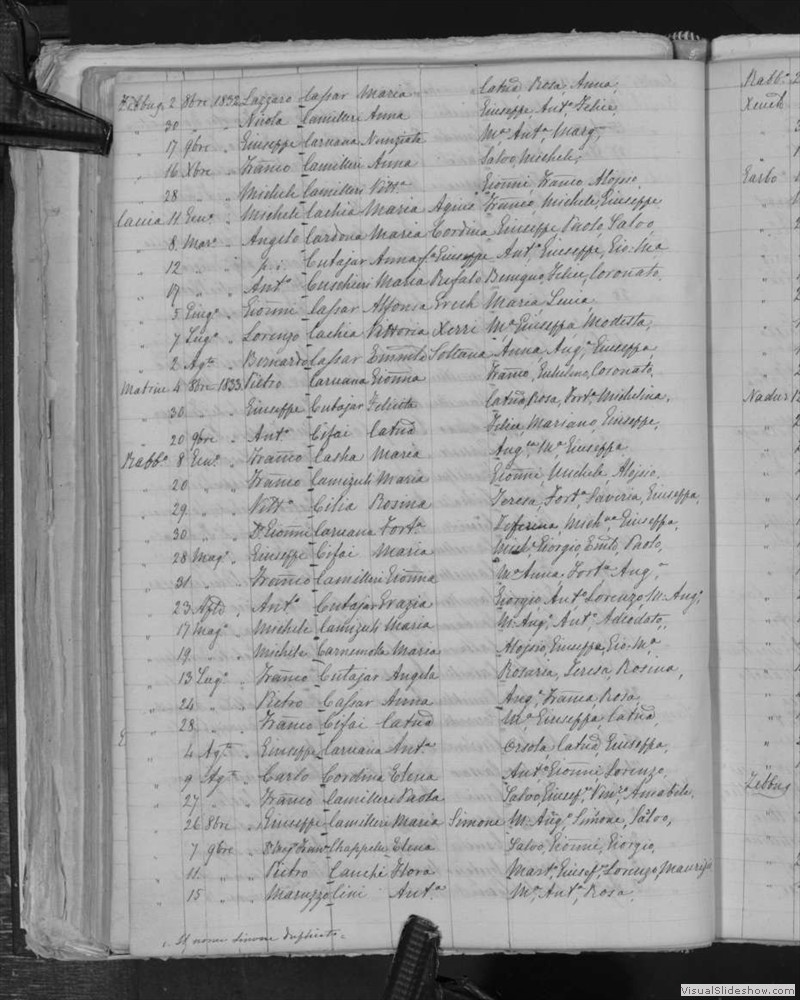 Zebbug 2 8bre 1832 Lazzaro Cassar Maria Catña Rosa Anna,
" 30 " " Nicola Camilleri Anna Giuseppe, Antº Felice,
" 17 9bre " Giuseppe Caruana Nunziata Mª Antª Marg.
" 16 Xbre " Franco Camilleri Anna Salvo, Michele,
" 28 " " Michele Camilleri Vittª Gioñni Franco Aloisio
Caccia 11 Genº " Michele Cachia Maria Agius Franco, Michele, Giuseppe
" 8 Marº " Angelo Cardona Maria Cordina Giuseppe Paolo, Salvo,
" 12 " " Cutajar Anna Giuseppe Antº Giuseppe, Gio: Mª
" 19 " " Antº Cuschieri Maria Refalo Benigno, Felice, Coronato.
" 5 Giugº " Gioñni Cassar Alfonsa Grech Maria, Lucia,
" 7 Lugº " Lorenzo Cachia Vittoria Xerri Mª Giuseppa Modesta,
" 2 Agto " Bernardo Cassar Sultana Anna, Augª Giuseppa,
Matrice 4 8bre 1833 Pietro Caruana Gioñna Franco, Coronato,
" 30 " " Giuseppe Cutajar Felicita Catña Rosa, Fortª Michelina,
" 20 9bre " Antº Cifai Catña Felice Mariano, Giuseppe,
Rabbº 8 Genº " Franco Casha Maria Augna Mª Giuseppa
" 20 " " Franco Camizuli Maria Gioñni Michele, Aloisio.
" 29 " " Cilia Rosina Teresa, Fortª Saveria, Giuseppa,
" 30 " " Dr Gioñni Caruana Fortª Zeferina, Giuseppa,
" 28 Magº " Giuseppe Cifai Maria Michˡᵉ Giorgio, Paolo,
" 31 " " Franco Camilleri Gioñna Mª Anna, Fortª Augª
" 23 " Antº Cutajar Grazia Giorgio, Antº Lorenzo, M: Augª
" 17 Magº " Michele Camizuli Maria M: Augª Antº Adeodato,
" 19 " " Michele Carnemola Maria Aloisio, Giuseppa, Gio: Mª
" 13 Lugº " Franco Cutajar Angela Rosaria, Teresa, Rosina,
" 24 " " Pietro Cassar Anna Augª Franca, Rosa
" 28 " " Franco Cifai Catña Mª Giuseppa, Catña,
" 4 Agto " Giuseppe Caruana Antª Orsola Catña Giuseppa,
" 9 Agto " Carlo Cordina Elena Antº Gioñni Lorenzo,
" 27 " " Franco Camilleri Paola Salvo, Amabile,
" 26 8bre " Giuseppe Camilleri Maria Simone M: Augª Simone, Salvo,
" 7 9bre " Chappelle Elena Salvo, Gioñni, Giorgio,
" 11 " " Pietro Flora Lorenzo, Maurizio
" 15 " " Maruzzo Cini Antª Mª Antª Rosa,
Il nome Simone duplicato
Rabbº
Xeuch
Garbo
Nadur
Zebbug
VisualSlideshow.com